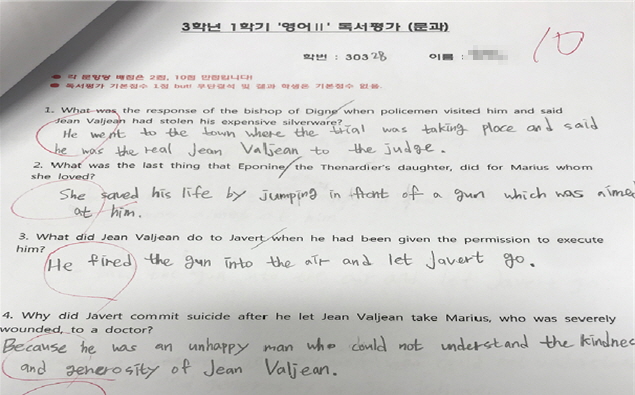 3학년 1학기 '영어Ⅱ' 독서평가 (문과)
학번 : 30328 이름 :
10
● 각 문항당 배점은 2점, 10점 만점입니다!
● 독서평가 기본점수 1점 but! 무단결석 및 결과 학생은 기본점수 없음.
1. What was the response of the bishop of Digne when policemen visited him and said
Jean Valjean had stolen his expensive silverware?
He went to the town where the trial was taking place and said
he was the real Jean Valjean to the judge.
2. What was the last thing that Eponine, the Thenardier's daughter, did for Marius whom
she loved?
She saved his life by jumping in front of a gun which was aimed
at him.
3. What did Jean Valjean do to Javert when he had been given the permission to execute
him?
He fired the gun into the air and let Javert go.
4. Why did Javert commit suicide after he let Jean Valjean take Marius, who was severely
wounded, to a doctor?
Because he was an unhappy man who could not understand the kindnes
and generosity of Jean Valjean.